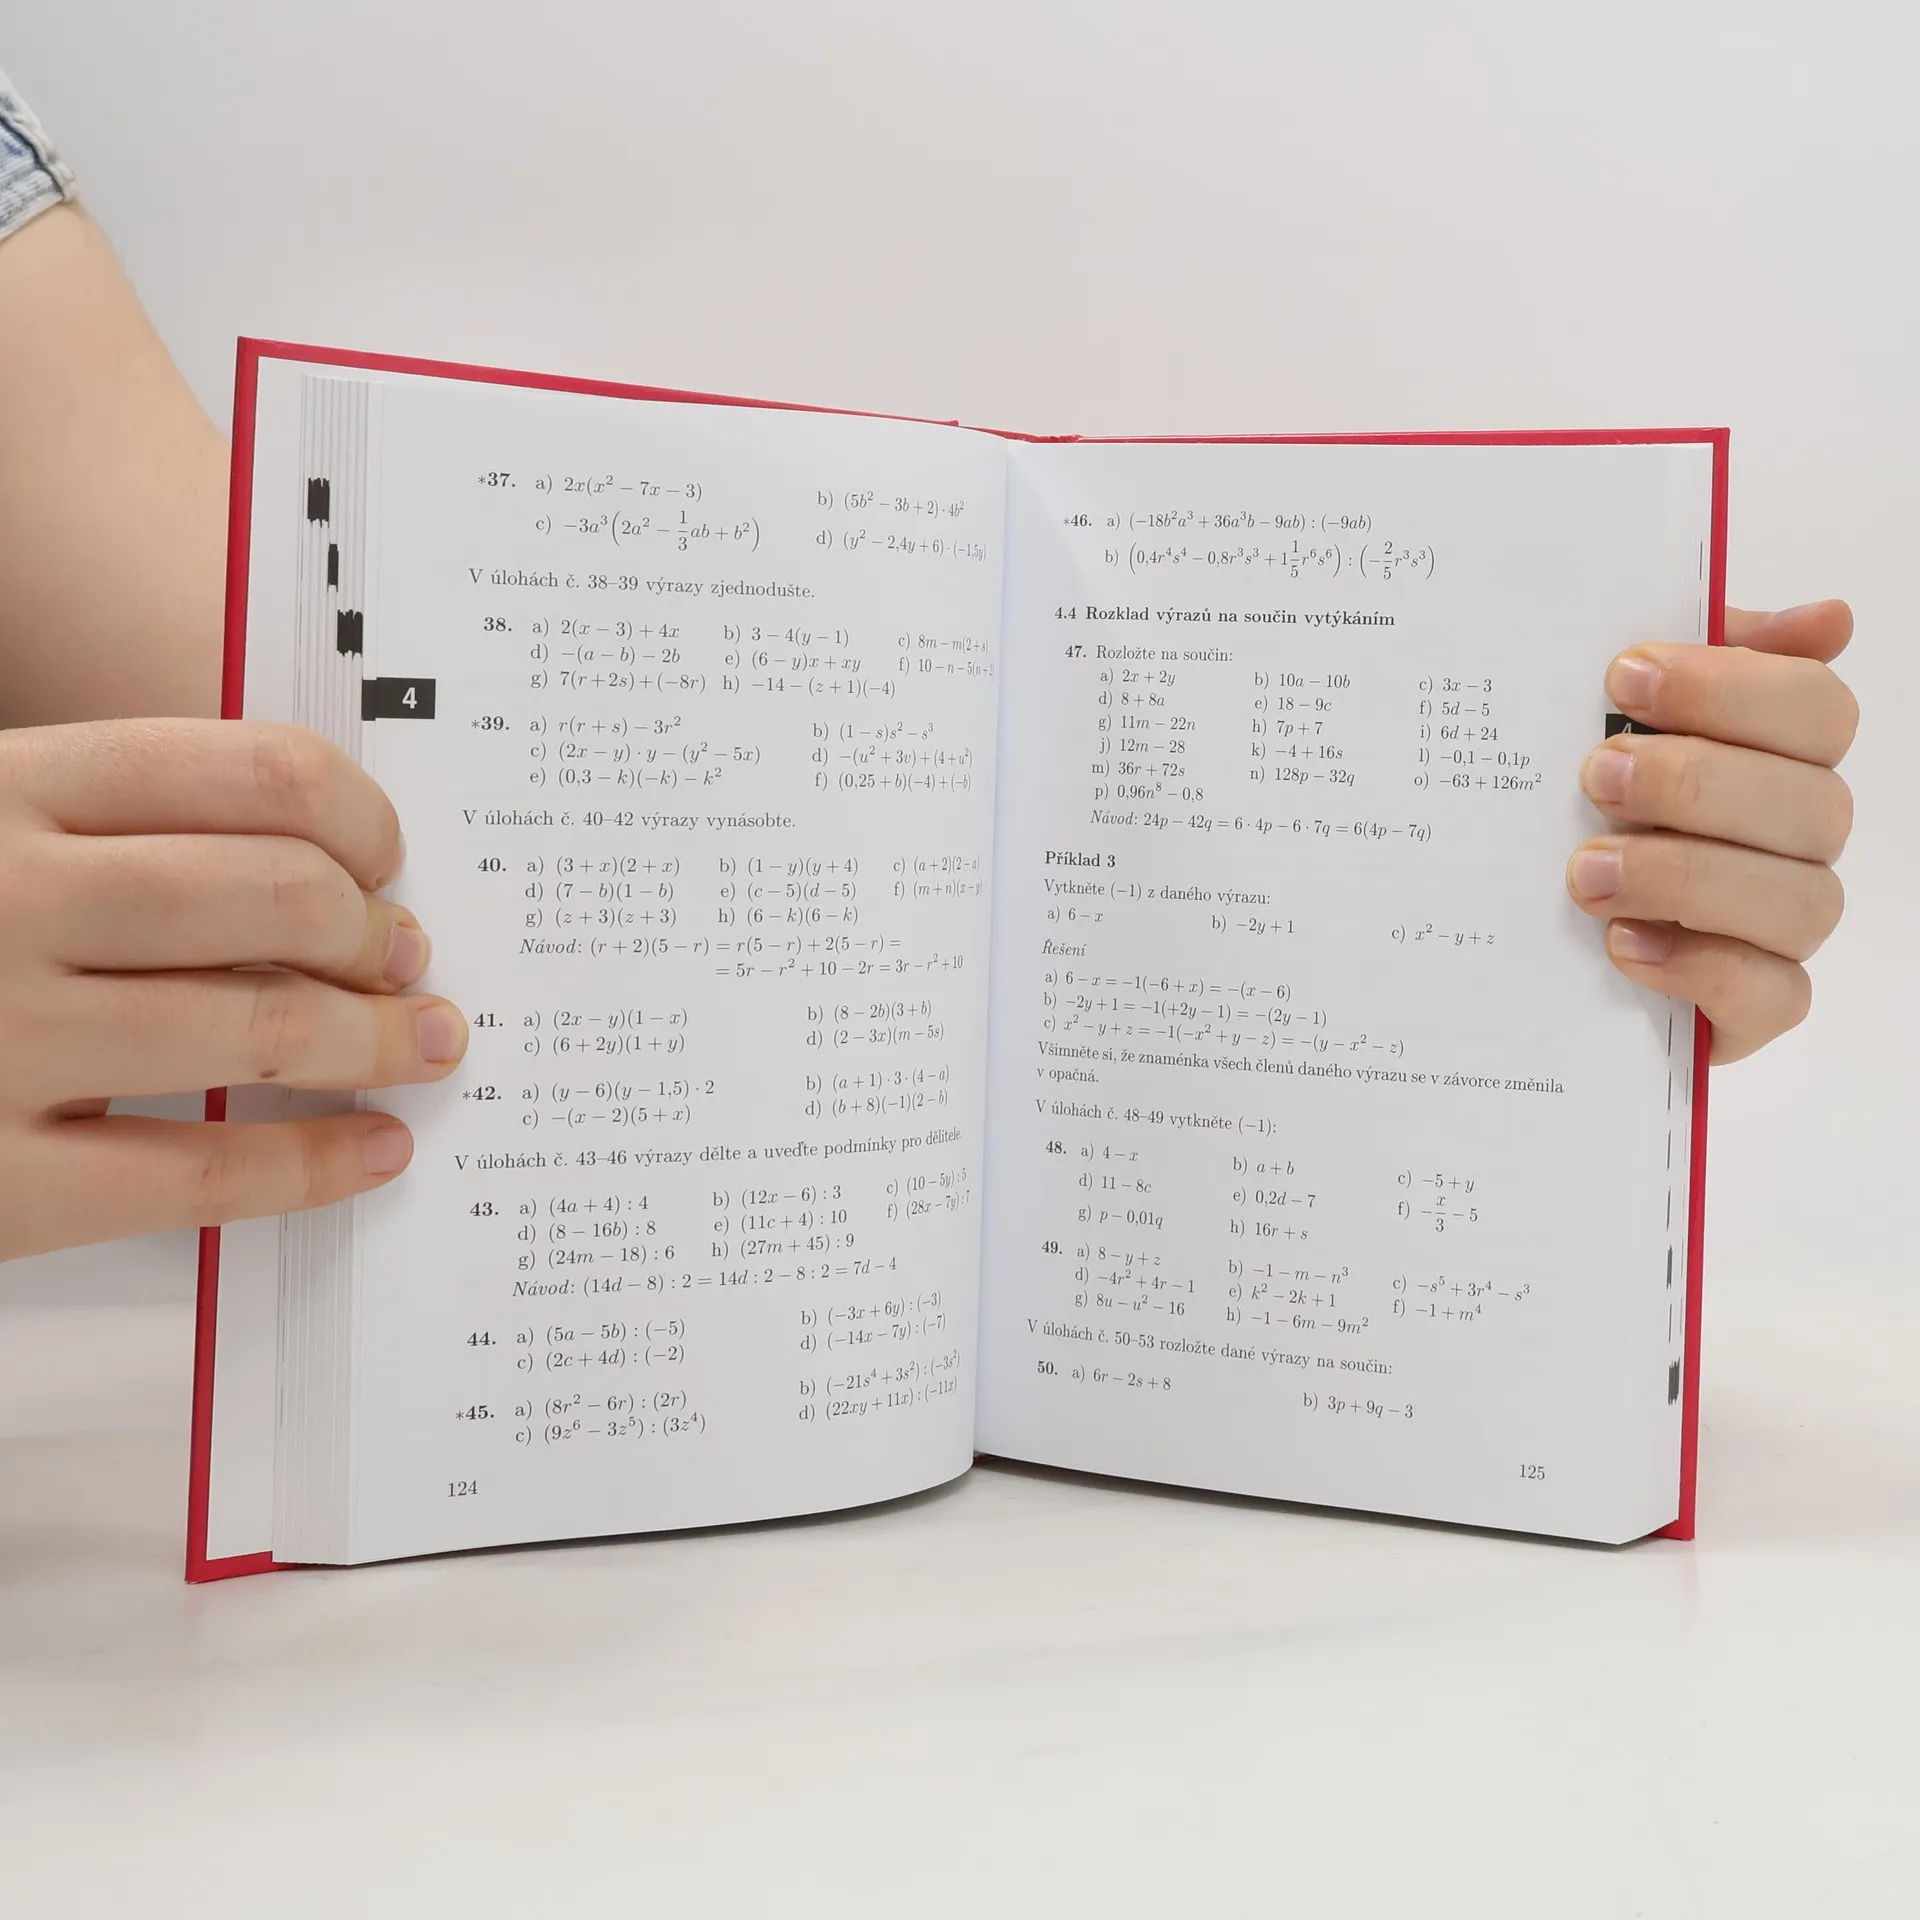 *37. a) 2x(x² − 7x − 3) b) (5b² − 3b + 2) · 4b²
c) −3a³(2a² − 1/3 ab + b²) d) (y² − 2,4y + 6) · (−1,5y)
V úlohách č. 38–39 výrazy zjednodušte.
38. a) 2(x − 3) + 4x b) 3 − 4(y − 1) c) 8m − m(2 + s)
d) −(a − b) − 2b e) (6 − y)x + xy f) 10 − n − 5(n + 2)
g) 7(r + 2s) + (−8r) h) −14 − (z + 1)(−4)
*39. a) r(r + s) − 3r² b) (1 − s)s² − s³
c) (2x − y) · y − (y² − 5x) d) −(u² + 3v) + (4 + u²)
e) (0,3 − k)(−k) − k² f) (0,25 + b)(−4) + (−b)
V úlohách č. 40–42 výrazy vynásobte.
40. a) (3 + x)(2 + x) b) (1 − y)(y + 4) c) (a + 2)(2 − a)
d) (7 − b)(1 − b) e) (c − 5)(d − 5) f) (m + n)(x − y)
g) (z + 3)(z + 3) h) (6 − k)(6 − k)
Návod: (r + 2)(5 − r) = r(5 − r) + 2(5 − r) =
= 5r − r² + 10 − 2r = 3r − r² + 10
41. a) (2x − y)(1 − x) b) (8 − 2b)(3 + b)
c) (6 + 2y)(1 + y) d) (2 − 3x)(m − 5s)
*42. a) (y − 6)(y − 1,5) · 2 b) (a + 1) · 3 · (4 − a)
c) −(x − 2)(5 + x) d) (b + 8)(−1)(2 − b)
V úlohách č. 43–46 výrazy dělte a uveďte podmínky pro dělitele.
43. a) (4a + 4) : 4 b) (12x − 6) : 3 c) (10 − 5y) : 5
d) (8 − 16b) : 8 e) (11c + 4) : 10 f) (28x − 7y) : 7
g) (24m − 18) : 6 h) (27m + 45) : 9
Návod: (14d − 8) : 2 = 14d : 2 − 8 : 2 = 7d − 4
44. a) (5a − 5b) : (−5) b) (−3x + 6y) : (−3)
c) (2c + 4d) : (−2) d) (−14x − 7y) : (−7)
*45. a) (8r² − 6r) : (2r) b) (−21s⁴ + 3s²) : (−3s²)
c) (9z⁶ − 3z⁵) : (3z⁴) d) (22xy + 11x) : (−11x)
124
4
*46. a) (−18b²a³ + 36a³b − 9ab) : (−9ab)
b) (0,4r⁴s⁴ − 0,8r³s³ + 1 1/5 r⁶s⁶) : (−2/5 r³s³)
4.4 Rozklad výrazů na součin vytýkáním
47. Rozložte na součin:
a) 2x + 2y b) 10a − 10b c) 3x − 3
d) 8 + 8a e) 18 − 9c f) 5d − 5
g) 11m − 22n h) 7p + 7 i) 6d + 24
j) 12m − 28 k) −4 + 16s l) −0,1 − 0,1p
m) 36r + 72s n) 128p − 32q o) −63 + 126m²
p) 0,96n⁸ − 0,8
Návod: 24p − 42q = 6 · 4p − 6 · 7q = 6(4p − 7q)
Příklad 3
Vytkněte (−1) z daného výrazu:
a) 6 − x b) −2y + 1 c) x² − y + z
Řešení
a) 6 − x = −1(−6 + x) = −(x − 6)
b) −2y + 1 = −1(+2y − 1) = −(2y − 1)
c) x² − y + z = −1(−x² + y − z) = −(y − x² − z)
Všimněte si, že znaménka všech členů daného výrazu se v závorce změnila
v opačná.
V úlohách č. 48–49 vytkněte (−1):
48. a) 4 − x b) a + b c) −5 + y
d) 11 − 8c e) 0,2d − 7 f) −x/3 − 5
g) p − 0,01q h) 16r + s
49. a) 8 − y + z b) −1 − m − n³ c) −s⁵ + 3r⁴ − s³
d) −4r² + 4r − 1 e) k² − 2k + 1 f) −1 + m⁴
g) 8u − u² − 16 h) −1 − 6m − 9m²
V úlohách č. 50–53 rozložte dané výrazy na součin:
50. a) 6r − 2s + 8 b) 3p + 9q − 3
125